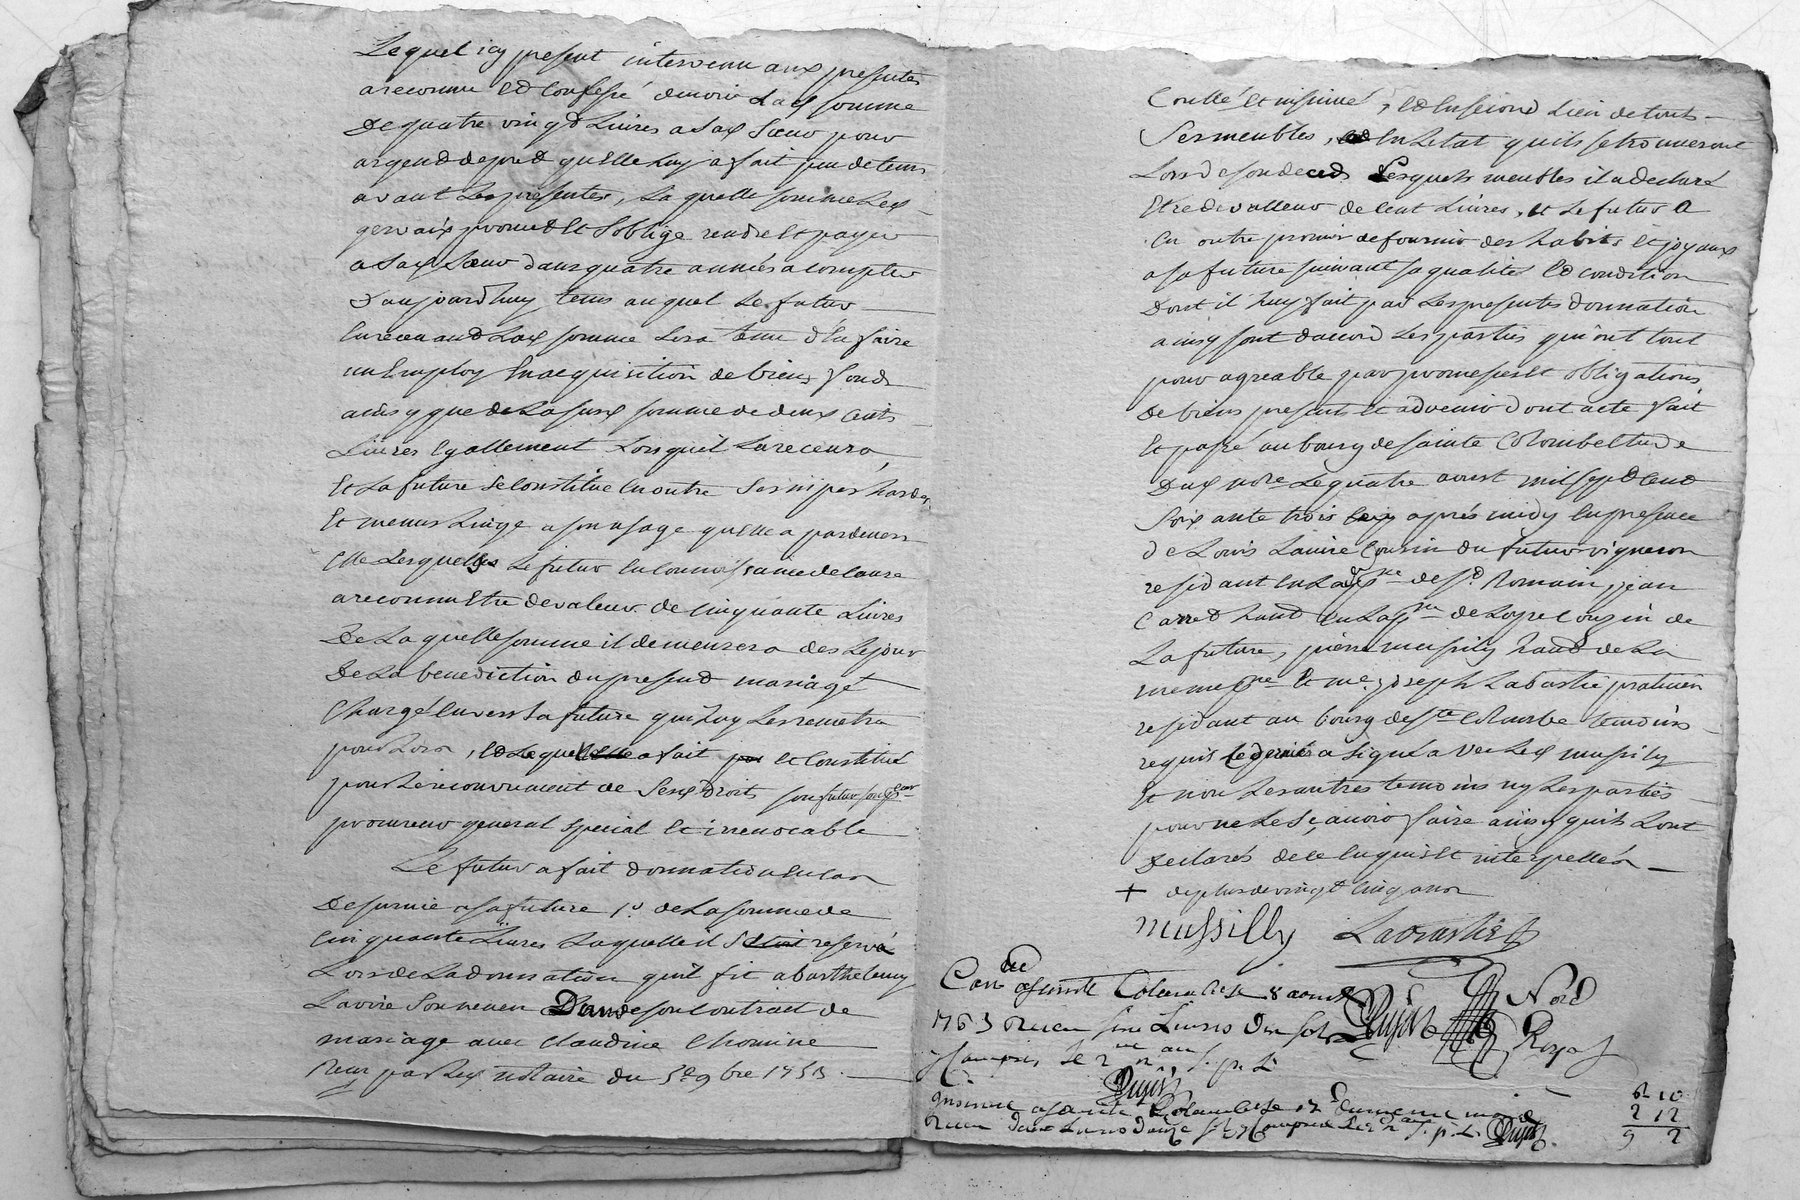 Lequel icy present intervenu aux presentes
a reconnu et confessé devoir Lad somme
De quatre vingt Livres a sad Sœur pour
argend de pret qu'Elle Luy a fait peu de tems
avant Les presentes, La quelle somme Led
gervaix promet Et S'oblige rendre Et payer
a sad Sœur dans quatre années a compter
d'aujourd'huy tems auquel Le futur
En recevand Lad somme sera tenu d'En faire
un Employ En acquisition de biens fonds
ainsy que de La susd somme de deux cents
Livres Egallement Lorsquil La recevra,
Et La future se Constitue En outre Ses nipes hardes
Et menus Linge a son usage quelle a pardevers
Elle Lesquelles Le futur En connoissance de cause
a reconnu Etre de valeur de Cinquante Livres
De La quelle somme il demeurera des Le jour
De La benediction du presend mariage
Chargé Envers La future qui Luy Les remetra
pour Lors, Et Lequel a fait et Constitué
pour Le recouvrement de Sesd droits son futur
procureur general special Et irrevocable
Le futur a fait donnation En cas
De survie a sa future 1° de La somme de
Cinquante Livres Laquelle il S'étoit reservé
Lors de La donnation quil fit a barthelemy
Lavire Son neveu Dans son Contract de
mariage avec Claudine Chomine
Receu par Led notaire du 9bre
Lors de son deceds Lesquels meubles il a declaré
Etre de valleur de Cent Livres, Et Le futur a
En outre promis de fournir des habits Et joyaux
a sa future suivant sa qualité Et condition
Dont il Luy fait par Les presentes donnation
ainsy sont d'accord Les parties qui ont tout
pour agreable par promesses Et obligations
De biens presents Et advenir dont acte fait
Et passé au bourg de sainte Colombe Etude
Dud nore Le quatre aoust mil sept Cend
Soixante trois après midy En presence
de Louis Lavire Cousin du futur vigneron
residant En La psse de St Romain, jean
Carret hand En La psse de Loyre Cousin de
La future, pierre mussily hand de La
meme psse Et me joseph Labastie praticien
residant au bourg de Ste Colombe temoins
requis Le dernier a Signé avec Led mussily
Et non Les autres temoins ny Les parties
pour ne Le Sçavoir faire ainsy quils L'ont
Declarés de Ce Enquis Et interpellés
+ de plus de vingt Cinq ans
mussilly Labastie
Conlé a sainte Colombe Le 8 aoust Dujast Nord
1763 Receu Livres Dix sols Royal
y compris Le
Dujast
Insinué a sainte Colombe Le
Receu deux Livres douze sols y compris Dujast
6 10
2 12
9 2